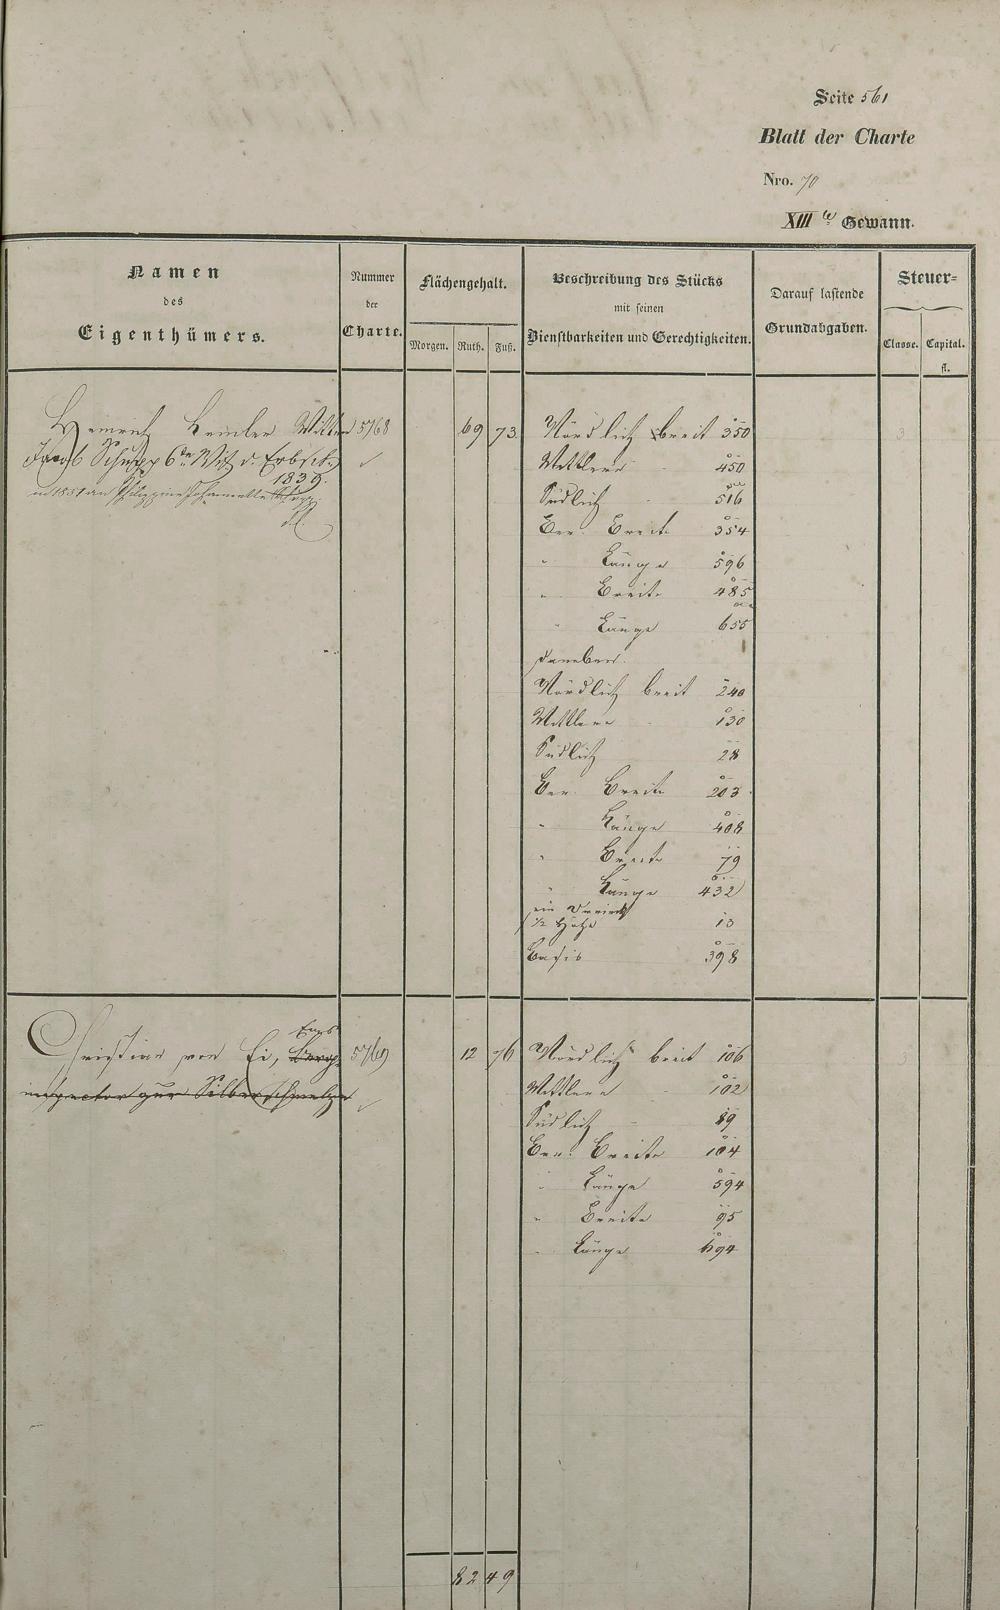 Seite 561
Blatt der Charte
Nro. 70
XIIIte Gewann.
Namen des Eigenthümers.
Nummer der Charte.
Flächengehalt.
Morgen. Ruth. Fuß.
Beschreibung des Stücks mit seinen Dienstbarkeiten und Gerechtigkeiten.
Darauf lastende Grundabgaben.
Steuer-
Classe. Capital. fl.
Heinrich 5768 69 73 Nördlich breit 350 3
Jacob Schupp 6te
1839.
in 1851 an Philippine
Mittlere 450
Südlich 516
Ver. Breite 354
" Länge 596
" Breite 485
" Länge 655
daneben
Nördlich breit 240
Mittlere 130
Südlich 28
Ver. Breite 203
" Länge 408
" Breite 79
" Länge 432
ein Dreieck
1/2 Höhe 13
Basis 398
Christian von Ei, Berg- 5769 12 76 Nördlich breit 106 3
inspector zur Silberschmelze
Mittlere 102
Südlich 89
Ver. Breite 104
" Länge 594
" Breite 95
" Länge 694
82 49